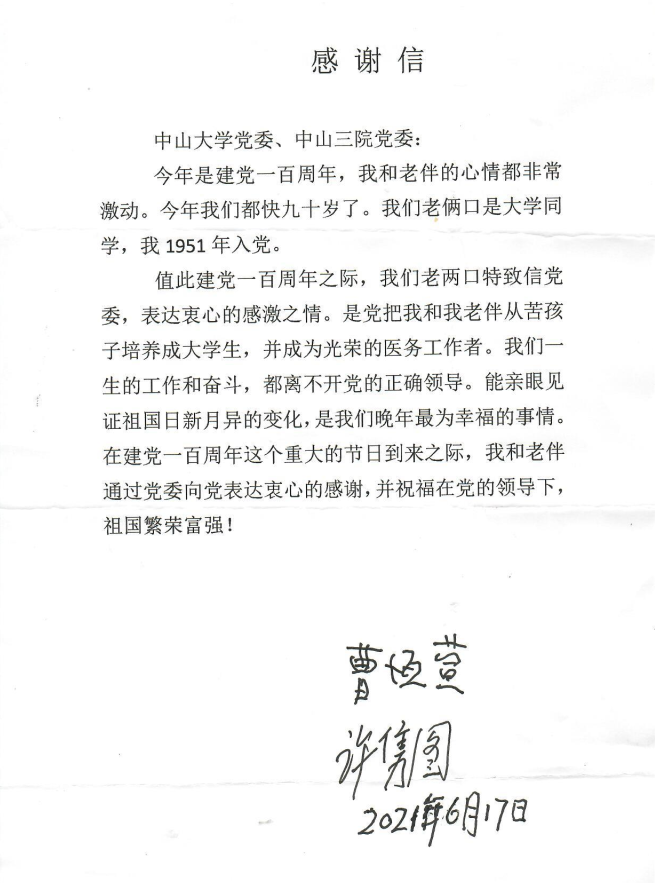 感谢信
中山大学党委、中山三院党委：
今年是建党一百周年，我和老伴的心情都非常
激动。今年我们都快九十岁了。我们老俩口是大学同
学，我 1951 年入党。
值此建党一百周年之际，我们老两口特致信党
委，表达衷心的感激之情。是党把我和我老伴从苦孩
子培养成大学生，并成为光荣的医务工作者。我们一
生的工作和奋斗，都离不开党的正确领导。能亲眼见
证祖国日新月异的变化，是我们晚年最为幸福的事情。
在建党一百周年这个重大的节日到来之际，我和老伴
通过党委向党表达衷心的感谢，并祝福在党的领导下，
祖国繁荣富强！
曹恒萱
许隽图
2021年6月17日